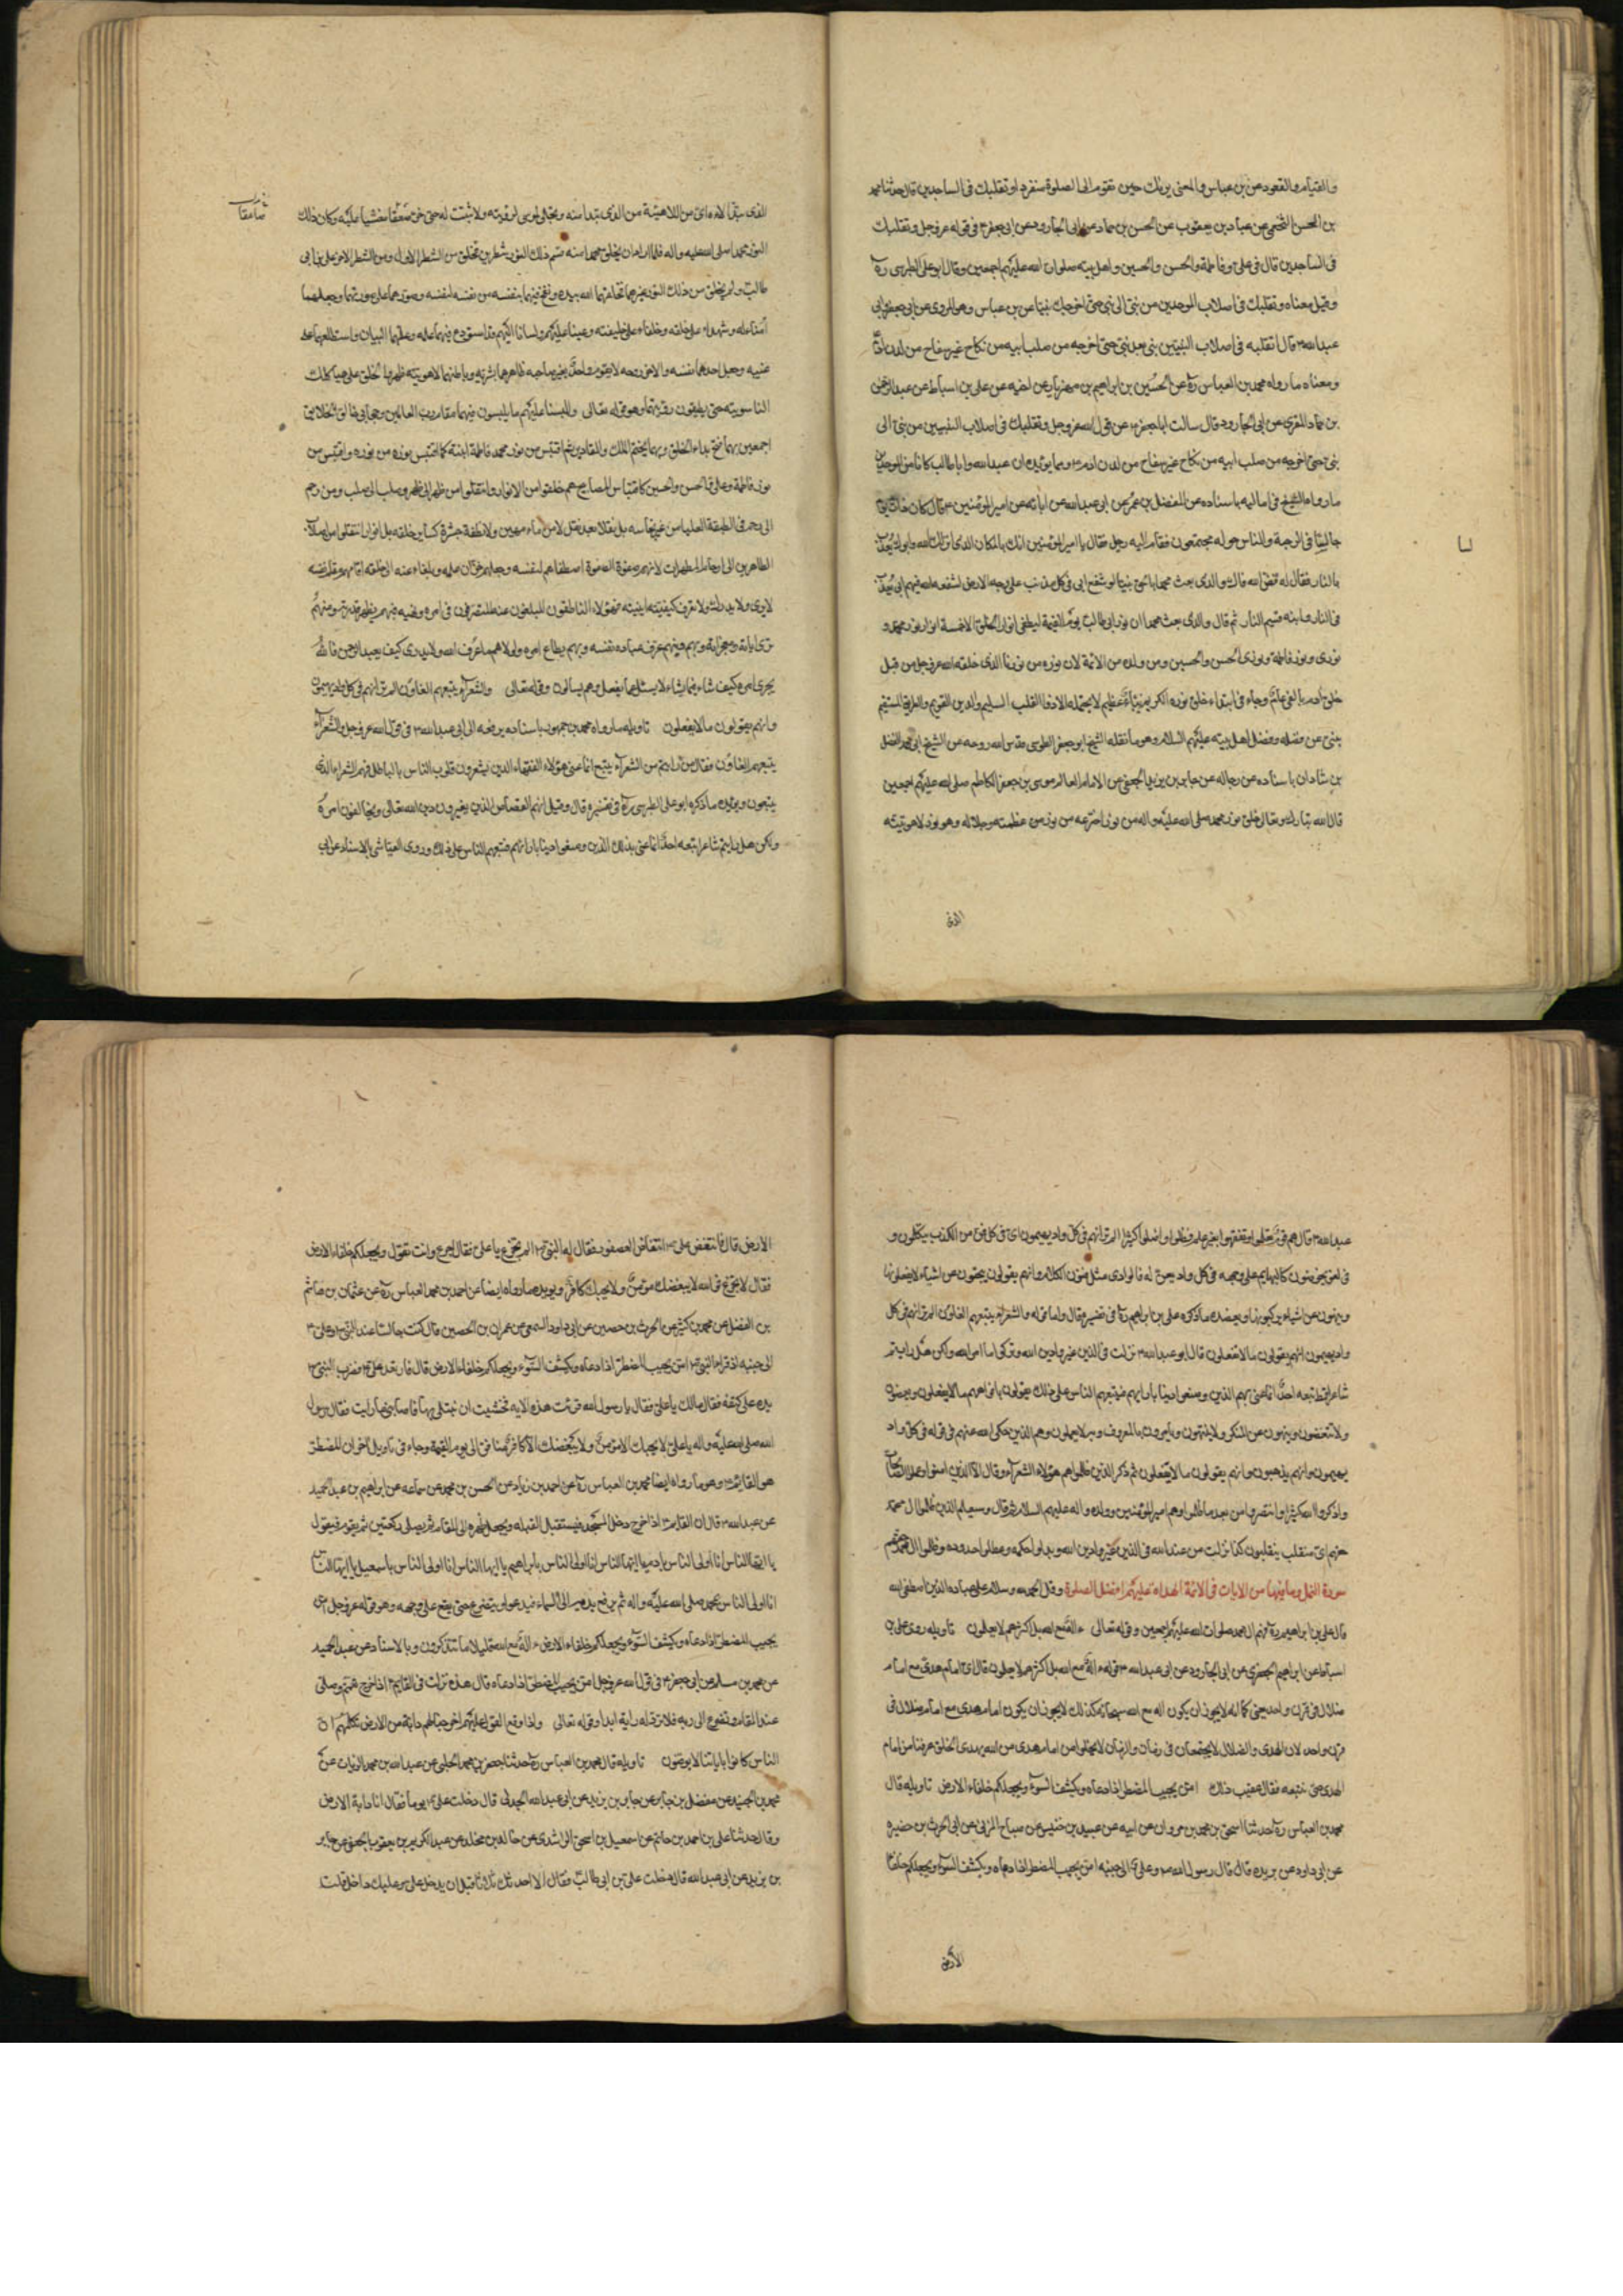 والقيام والقعود عن بن عباس والمعنى يريك حين تقوم الى الصلوة منفردا وتقلبك فى الساجدين قال حدثنا محمد
بن الحسن الخثعمى عن عباد بن يعقوب عن الحسن بن حماد عن ابى الجارود عن ابى جعفر ع فى قوله عز وجل وتقلبك
فى الساجدين قال فى على وفاطمة والحسن والحسين واهل بيته صلوات الله عليهم اجمعين وقال ابو على الطبرسى ره
وقيل معناه وتقلبك فى اصلاب الموحدين من نبى الى نبى حتى اخرجك نبيا عن بن عباس وهو المروى عن ابى جعفر وابى
عبد الله ع قال تقلبه فى اصلاب النبيين نبى بعد نبى حتى اخرجه من صلب ابيه من نكاح غير سفاح من لدن ادم
ومعناه ما رواه محمد بن العباس ره عن الحسين بن ابراهيم بن مهزيار عن اخيه عن على بن اسباط عن عبد الرحمن
بن حماد المقرى عن ابى الجارود قال سالت ابا جعفر ع عن قول الله عز وجل وتقلبك فى اصلاب النبيين من نبى الى
نبى حتى اخرجه من صلب ابيه من نكاح غير سفاح من لدن ادم ع ومما يؤيده ان عبد الله وابا طالب كانا من الموحدين
ما رواه الشيخ فى اماليه باسناده عن المفضل بن عمر عن ابى عبد الله عن ابائه عن امير المؤمنين ع قال كان ذات يوم
جالسا فى الرحبة والناس حوله مجتمعون فقام اليه رجل فقال يا امير المؤمنين انك بالمكان الذى انزلك الله وابوك يعذب
بالنار فقال له مه فض الله فاك والذى بعث محمدا بالحق نبيا لو شفع ابى فى كل مذنب على وجه الارض لشفعه الله فيهم ابى يعذب
فى النار وابنه قسيم النار ثم قال والذى بعث محمدا ان نور ابى طالب يوم القيمة ليطفى انوار الخلق الا خمسة انوار نور محمد و
نورى ونور فاطمة ونورى الحسن والحسين ومن ولده من الائمة لان نوره من نورنا الذى خلقه الله عز وجل من قبل
خلق ادم بالفى عام وجاء فى ابتداء خلق نوره الكريم نبأ عظيم لا يحتمله الا ذو القلب السليم والدين القويم والطريق المستقيم
ينبئ عن فضله وفضل اهل بيته عليهم السلام وهو ما نقله الشيخ ابو جعفر الطوسى قدس الله روحه عن الشيخ ابى محمد الفضل
بن شاذان باسناده عن رجاله عن جابر بن يزيد الجعفى عن الامام العالم موسى بن جعفر الكاظم صلى الله عليهم اجمعين
قال الله تبارك وتعالى خلق نور محمد صلى الله عليه واله من نور اخترعه من نور من عظمته وجلاله وهو نور لاهوتيته
الذى
الذى تبدا لاه اى من اللاهيته من الذى تبدا منه وتجلى لموسى لرؤيته ولا ثبت له حتى خر صعقا مغشيا عليه وكان ذلك
النور محمدا صلى الله عليه واله فلما اراد ان يخلق محمدا منه قسم ذلك النور شطرين فخلق من الشطر الاول ومن الشطر الاخر على بن ابى
طالب ولم يخلق من ذلك النور غيرهما خلقهما الله بيده ونفخ فيهما بنفسه من نفسه لنفسه وصورهما على صورتهما وجعلهما
امناء له وشهداء على خلقه وخلفاء على خليقته وعينا عليهم ولسانا اليهم وقد استودع فيهما علمه وعلمهما البيان واستطلعهما على
غيبه وجعل احدهما نفسه والاخر روحه لا يقوم واحد بغير صاحبه ظاهرهما بشرية وباطنهما لاهوتيته ظهرا للخلق على هياكل
الناسوتيه حتى يطيقون رؤيتهما وهو قوله تعالى وللبسنا عليهم ما يلبسون فيهما مقام رب العالمين وحجابى خالق الخلايق
اجمعين بهما فتح بداء الخلق وبهما يختم الملك والمقادير ثم اقتبس من نور محمد فاطمة ابنته كما اقتبس نوره من نوره واقتبس من
نور فاطمة وعلى الحسن والحسين كاقتباس المصابيح هم خلقوا من الانوار وانتقلوا من ظهر الى ظهر وصلب الى صلب ومن رحم
الى رحم فى الطبقة العليا من غير نجاسه بل نقلا بعد نقل لا من ماء مهين ولا نطفة جشرة كساير خلقه بل انوار انتقلوا من اصلاب
الطاهرين الى ارحام المطهرات لانهم صفوة الصفوة اصطفاهم لنفسه وجعلهم خزان علمه وبلغاء عنه الى خلقه اقامهم مقام نفسه
لا يرى ولا يدرك ولا تعرف كيفيته اينيته فهؤلاء الناطقون المبلغون عنه المتصرفون فى امره ونهيه فبهم يظهر قدرته ومنهم
ترى اياته ومعجزاته وبهم ومنهم عرف عباده نفسه وبهم يطاع امره ولولاهم ما عرف الله ولا يدرى كيف يعبد الرحمن فالله
يجرى امره كيف شاء فيما يشاء لا يسئل عما يفعل وهم يسالون وقوله تعالى والشعراء يتبعهم الغاوون الم تر انهم فى كل واد يهيمون
وانهم يقولون ما لا يفعلون تاويله ما رواه محمد بن جمهور باسناده يرفعه الى ابى عبد الله ع فى قول الله عز وجل والشعراء
يتبعهم الغاوون فقال من رايتم من الشعراء يتبع انما عنى هؤلاء الفقهاء الذين يشعرون قلوب الناس بالباطل فهم الشعراء الذى
يتبعون ويؤيده ما ذكره ابو على الطبرسى ره فى تفسيره قال وقيل انهم القصاص الذين يغيرون دين الله تعالى ويخالفون امره
ولكن هل رايتم شاعرا تبعه احد انما عنى بذلك الذين وضعوا دينا بارائهم فتبعهم الناس على ذلك وروى العياشى بالاسناد عن ابى
عبد الله ع قال هم قوم تعلموا وتفقهوا بغير علم فضلوا واضلوا كثيرا الم تر انهم فى كل واد يهيمون اى فى كل فن من الكذب يتكلمون و
فى لغو يخوضون كالهايم على وجهه فى كل واد يعن له فالوادى مثل لفنون الكلام وانهم يقولون يحثون عن اشياء لا يفعلونها
وينهون عن اشياء يرتكبونها ويعضده ما ذكره على بن ابراهيم ره فى تفسيره قال واما قوله والشعراء يتبعهم الغاوون الم تر انهم فى كل
واد يهيمون انهم يقولون ما لا يفعلون قال ابو عبد الله ع نزلت فى الذين غيروا دين الله وتركوا ما امر الله ولكن هل رايتم
شاعرا قط تبعه احد انما عنى بهم الذين وضعوا دينا بارايهم فيتبعهم الناس على ذلك يقولون بافواههم ما لا يفعلون ويعضون
ولا يتعضون وينهون عن المنكر ولا ينتهون ويامرون بالمعروف ولا يعملون وهم الذين حكى الله عنهم فى قوله فى كل واد
يهيمون وانهم يذهبون وانهم يقولون ما لا يفعلون ثم ذكر الذين ظلموا هم هؤلاء الشعراء وقال الا الذين امنوا وعملوا الصالحات
واذكروا الله كثيرا وانتصروا من بعد ما ظلموا وهم امير المؤمنين وولده واله عليهم السلام ثم قال وسيعلم الذين ظلموا ال محمد
حقهم اى منقلب ينقلبون كذا نزلت من عند الله فى الذين غيروا دين الله وبدلوا حكمه وعطلوا حدوده وظلموا ال محمد حقهم
سورة النمل وما فيها من الايات فى الائمة الهداة عليهم افضل الصلوة وقل الحمد لله وسلام على عباده الذين اصطفى الله
قال على بن ابراهيم ره هم ال محمد صلوات الله عليهم اجمعين وقوله تعالى ءاله مع الله بل اكثرهم لا يعلمون تاويله روى على بن
اسباط عن ابراهيم الجعفرى عن ابى الجارود عن ابى عبد الله ع قوله ءاله مع الله بل اكثرهم لا يعلمون قال اى امام هدى مع امام
ضلال فى قرن واحد يعنى كما انه لا يجوز ان يكون اله مع الله سبحانه كذلك لا يجوز ان يكون امام هدى مع امام ضلال فى
قرن واحد لان الهدى والضلال لا يجتمعان فى زمان والزمان لا يخلوا من امام هدى من الله يهدى الخلق عرفنا من امام
الهدى حتى نتبعه فقال عقيب ذلك امن يجيب المضطر اذا دعاه ويكشف السوء ويجعلكم خلفاء الارض تاويله قال
محمد بن العباس ره حدثنا اسحق بن محمد بن مروان عن ابيه عن عبيد بن خنيس عن صباح المزنى عن ابى الحرث بن حضيره
عن ابى داود عن بريده قال قال رسول الله ص وعلى ع الى جنبه امن يجيب المضطر اذا دعاه ويكشف السوء ويجعلكم خلفاء
الارض
الارض قال فانتفض على ع انتفاض العصفور فقال له النبى ص لم تجزع يا على فقال لم لا اجزع وانت تقول ويجعلكم خلفاء الارض
فقال لا تجزع فو الله لا يبغضك مؤمن ولا يحبك كافر ويؤيده ما رواه ايضا عن احمد بن محمد العباس ره عن عثمان بن هاشم
بن الفضل عن محمد بن كثير عن الحرث بن حصين عن ابى داود السبيعى عن عمران بن الحصين قال كنت جالسا عند النبى ص وعلى ع
الى جنبه اذ قراء النبى ص امن يجيب المضطر اذا دعاه ويكشف السوء ويجعلكم خلفاء الارض قال فارتعد على ع فضرب النبى ص
بيده على كتفه فقال مالك يا على فقال يا رسول الله قرئت هذه الايه فخشيت ان نبتلى بها فاصابنى ما رايت فقال رسول
الله صلى الله عليه واله يا على لا يحبك الا مؤمن ولا يبغضك الا كافر منافق الى يوم القيمة وجاء فى تاويل اخر ان المضطر
هو القايم ع وهو ما رواه ايضا محمد بن العباس ره عن احمد بن زياد عن الحسن بن محمد عن سماعه عن ابراهيم بن عبد الحميد
عن عبد الله ع قال ان القايم ع اذا خرج دخل المسجد فيستقبل القبله ويجعل ظهره الى المقام ثم يصلى ركعتين ثم يقوم فيقول
يا ايها الناس انا اولى الناس بادم يا ايها الناس انا اولى الناس بابراهيم يا ايها الناس انا اولى الناس باسمعيل يا ايها الناس
انا اولى الناس بمحمد صلى الله عليه واله ثم يرفع يديه الى السماء فيدعو ويتضرع حتى يقع على وجهه وهو قوله عز وجل امن
يجيب المضطر اذا دعاه ويكشف السوء ويجعلكم خلفاء الارض ءاله مع الله قليلا ما تتذكرون وبالاسناد عن عبد الحميد
عن محمد بن مسلم عن ابى جعفر ع فى قول الله عز وجل امن يجيب المضطر اذا دعاه قال هذه نزلت فى القايم ع اذا خرج تعمم وصلى
عند المقام وتضرع الى ربه فلا ترد له راية ابدا وقوله تعالى واذا وقع القول عليهم اخرجنا لهم دابة من الارض تكلمهم ان
الناس كانوا باياتنا لا يوقنون تاويله قال محمد بن العباس ره حدثنا جعفر بن محمد الحلبى عن عبد الله بن محمد الزيات عن
محمد بن الجنيد عن مفضل بن جابر عن جابر بن يزيد عن ابى عبد الله الجدلى قال دخلت على على ع يوما فقال انا دابة الارض
وقال حدثنا على بن احمد بن حاتم عن اسمعيل بن اسحق الراشدى عن خالد بن مخلد عن عبد الكريم بن يعقوب الجعفى عن جابر
بن يزيد عن ابى عبد الله قال دخلت على على بن ابى طالب فقال الا احدثك ثلاثا قبل ان يدخل على وعليك داخل قلت